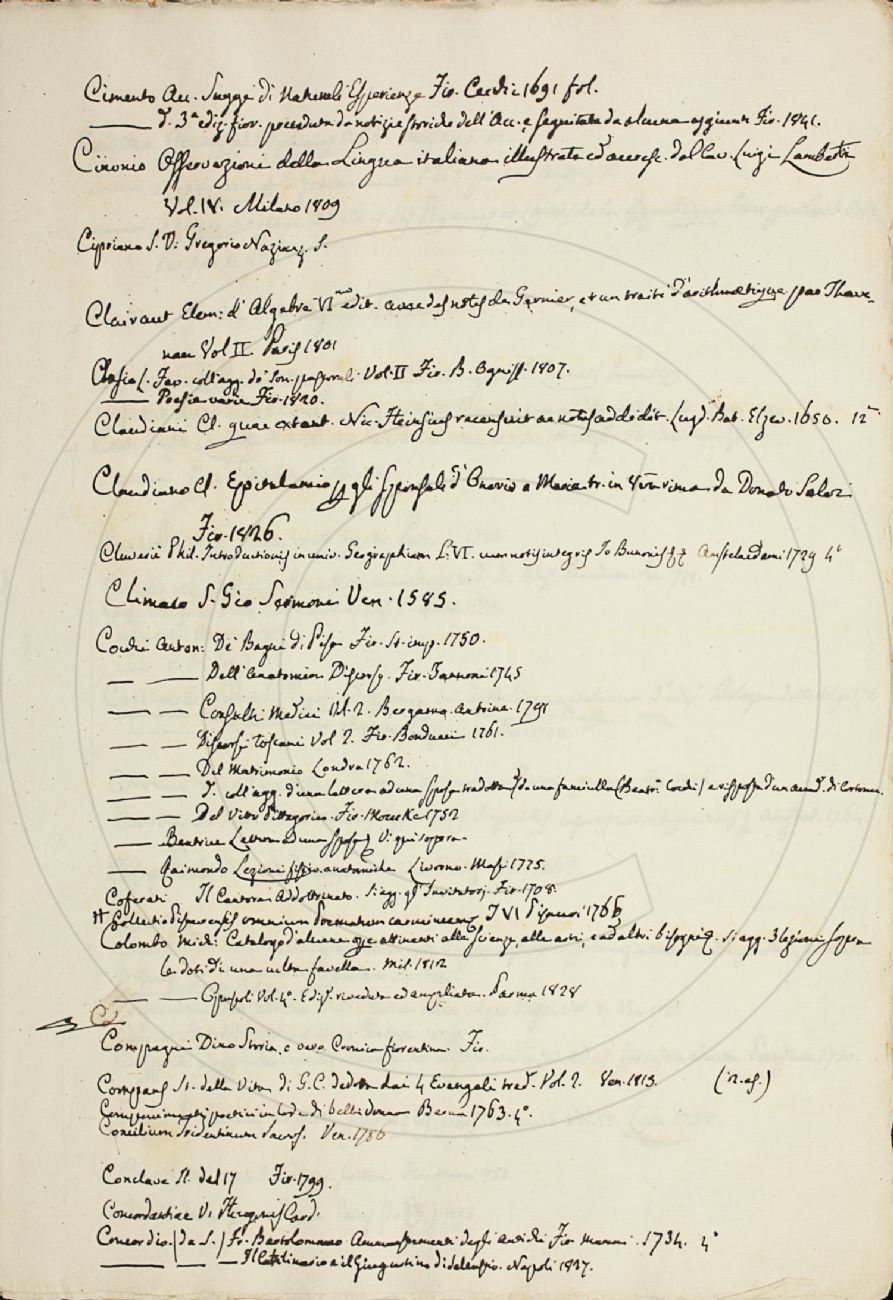 Cimento Acc. Saggi di Naturali Esperienze Fir. Cecchi 1691 fol.
——— d. 3ª ediz. fior. preceduta da notizie storiche dell'Acc. e seguitata da alcune aggiunte Fir. 1841.
Cinonio Osservazioni della Lingua italiana illustrate ed accresc. dal Cav. Luigi Lamberti
Vol. IV. Milano 1809
Cipriano S. V. Gregorio Nazianz. S.
Clairaut Elem: d'Algebre VI edit. avec des notes de Garnier, et un traité d'arithmetique par Theve-
neau Vol II. Paris 1801
Clasio L. Fav. coll'agg. de' Son. pastorali Vol. II Fir. B. Ogniss. 1807.
——— Poesie varie Fir. 1820.
Claudiani Cl. quae extant. Nic. Heinsius recensuit ac notas addidit. Lugd. Bat. Elzev. 1650. 12
Claudiano Cl. Epitalamio gli Sponsali d'Onorio e Maria tr. in rima da Donato Salvi
Fir. 1826.
Cluverii Phil. Introductionis in univ. Geographiam L. VI. cum notis integris Io Bunonis Amstelaedami 1729 4º
Climaco S. Gio Sermoni Ven. 1585.
Cocchi Anton: De' Bagni di Pisa Fir. St. imp. 1750.
— ——— Dell'Anatomia Discorso. Fir. 1745
——— —— Consulti Medici Vol. 2. Bergamo. Antoine. 1791
—— —— Discorsi Toscani Vol 2. Fir. Bonducci 1761.
—— —— Del Matrimonio Londra 1762.
—— —— d. coll'agg. d'una lettera ad una sposa tradotta da una fanciulla (Beatr. Cocchi) e risposta d'un accad. di Cortona.
—— —— Del Vitto Pittagorico. Fir. Moucke 1752
—— Beatrice Lettera ad una sposa V. qui sopra.
—— Raimondo Lezioni fisico. anatomiche Livorno. Masi 1775.
Coferati Il Cantore Addottrinato. Si agg. gl'Invitatorj. Fir. 1708.
Collectio Pisaurensis omnium Poematum carminum T VI Pisauri 1766
Colombo Mich: Catalogo d'alcune opere attinenti alle scienze, alle arti, e ad altri bisogni. Si agg. 3 lezioni sopra
le doti di una culta favella. Mil. 1812
—— ——— Opuscoli Vol. 4º. Ediz. riveduta ed ampliata. Parma 1828
Compagni Dino Storia, o vero Cronica fiorentina. Fir.
Compans St. della Vita di G.C. dedotta dai 4 Evangeli trad. Vol. 2. Ven. 1813. (2. es.)
Componimenti poetici in lode di belle donne 1763. 4º.
Concilium Tridentinum Sacros. Ven. 1786
Conclave St. del 17 Fir. 1799.
Concordantiae V. Hugonis Card.
Concordio. (da S.) Fr. Bartolommeo Ammaestramenti degli Antichi Fir. Manni. 1734. 4º
——— —— — Il Catilinario e il Giugurtino di Salustio. Napoli 1827.